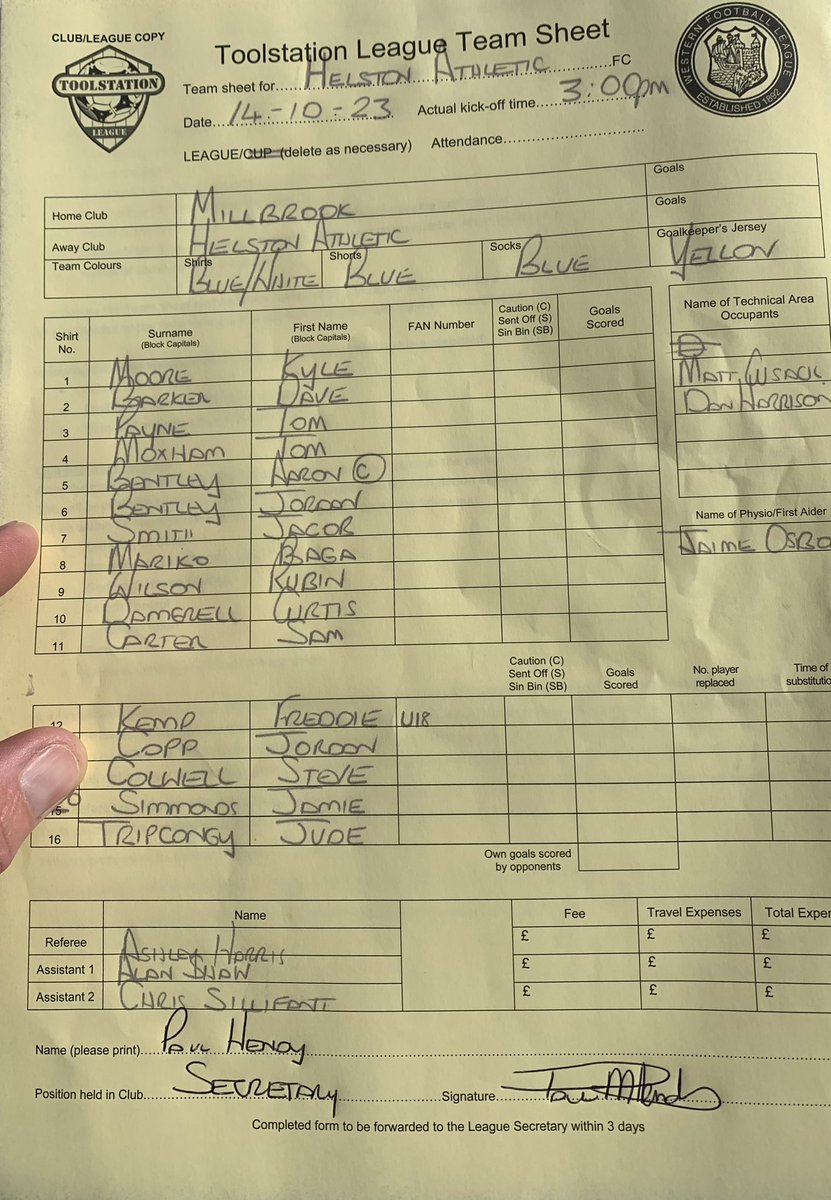 CLUB/LEAGUE COPY
TOOLSTATION
LEAGUE
Toolstation League Team Sheet
WESTERN FOOTBALL LEAGUE
ESTABLISHED 1892
Team sheet for HELSTON ATHLETIC FC
Date 14-10-23 Actual kick-off time 3:00pm
LEAGUE/CUP (delete as necessary) Attendance
Home Club MILLBROOK Goals
Away Club HELSTON ATHLETIC Goals
Team Colours Shirts BLUE/WHITE Shorts BLUE Socks BLUE Goalkeeper's Jersey YELLOW
Shirt No. Surname (Block Capitals) First Name (Block Capitals) FAN Number Caution (C) Sent Off (S) Sin Bin (SB) Goals Scored
1 MOORE KYLE
2 BARKER DAVE
3 PAYNE TOM
4 MOXHAM TOM
5 BENTLEY AARON C
6 BENTLEY JORDON
7 SMITH JACOB
8 MARIKO BAGA
9 WILSON RUBIN
10 DAMERELL CURTIS
11 CARTER SAM
Name of Technical Area Occupants
MATT CUSACK
DAN HARRISON
Name of Physio/First Aider
JAIME OSBO
Caution (C) Sent Off (S) Sin Bin (SB) Goals Scored No. player replaced Time of substitutio
12 KEMP FREDDIE U18
COPP JORDON
COLWELL STEVE
SIMMONDS JAMIE
16 TRIPCONGY JUDE
Own goals scored by opponents
Name Fee Travel Expenses Total Exper
Referee ASHLEY HARRIS £ £ £
Assistant 1 ALAN SHAW £ £ £
Assistant 2 CHRIS SILLIFANT £ £ £
Name (please print) PAUL HENDY
Position held in Club SECRETARY Signature
Completed form to be forwarded to the League Secretary within 3 days